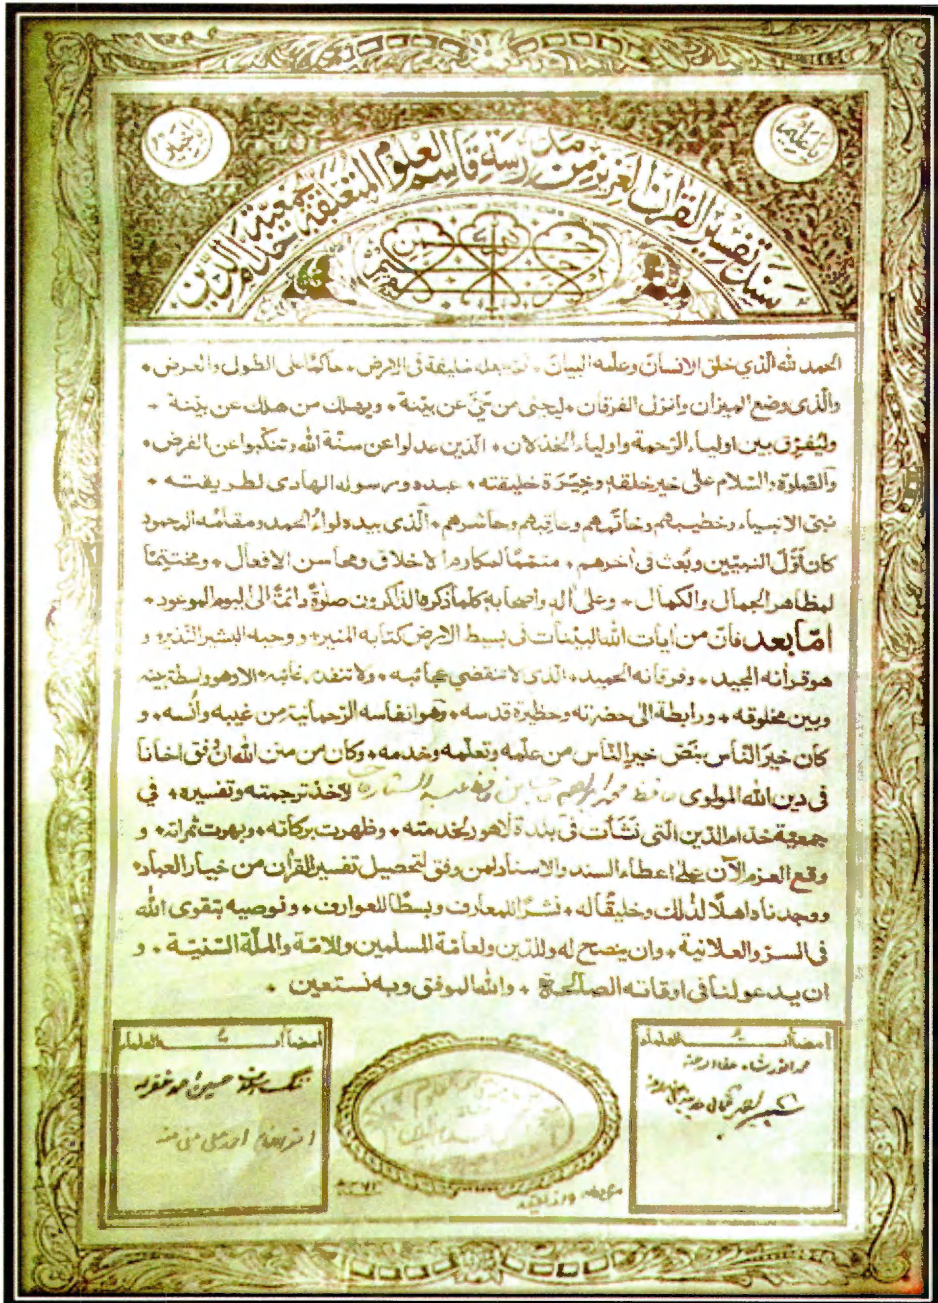 يا عليم
سند تفسير القرآن العزيز من مدرسة قاسم العلوم المتعلقة بجمعية خدام الدين
الحمد لله الذي خلق الانسان وعلمه البيان • ثم جعله خليفة في الارض • حاكمًا على الطول والعرض •
والذى وضع الميزان وانزل الفرقان • ليحيى من حيّ عن بينة • ويهلك من هلك عن بينة •
وليُفرّق بين اولياء الرحمة واولياء الخذلان • الذين عدلوا عن سنة الله وتنكبوا عن الفرض •
والصلوة والسلام على خير خلقه وخِيَرَة خليقته • عبده ورسوله الهادى لطريقته •
نبي الانبياء وخطيبهم وخاتمهم وعاقبهم وحاشرهم • الذى بيده لواء الحمد ومقامه المحمود
كان أوّل النبيّين وبُعث في اٰخرهم • متممًا لمكارم الاخلاق ومحاسن الافعال • ومختتمًا
لمظاهر الجمال والكمال • وعلى اٰله واصحابه كلما ذكره الذاكرون صلوةً دائمةً الى اليوم الموعود •
امّا بعد فانّ من اٰيات الله البيّنات في بسط الارض كتابه المنير • ووحيه البشير النذير • و
هو قرأنه المجيد • وفرقانه الحميد • الذى لا تنقضي عجائبه • ولا تنفد رغائبه • الا وهو واسطة بينه
وبين مخلوقه • ورابطة الى حضرته وحظيرة قدسه • وهو انفاسه الرحمانية من غيبه وأنسه • و
كان خير الناس بنص خير الناس من علّمه وتعلّمه وخدمه • وكان من منن الله ان وُفق اخانا
فى دين الله المولوى حافظ محمد ابراهيم لاخذ ترجمته وتفسيره • في
جمعية خدام الدين التي نشأت في بلدة لاهور لخدمته • وظهرت بركاته • وبهرت ثمراته • و
وقع العزم الآن على اعطاء السند والاسناد لمن وفق لتحصيل تفسير القرأن من خيار العباد •
ووجدناه اهلًا لذلك وخليقًا له • نشرًا للمعارف وبسطًا للعوارف • ونوصيه بتقوى الله
فى السر والعلانية • وان ينصح له وللدين ولعامة المسلمين وللامة والملّة السّنيّة • و
ان يدعو لنا في اوقاته الصالحة • والله الموفق وبه نستعين •
امضاآت العلماء
محمد انور شاه عفا الله عنه
امضاآت العلماء
ننگ اسلاف حسين احمد غفرله
احقر الانام احمد علي عفي عنه